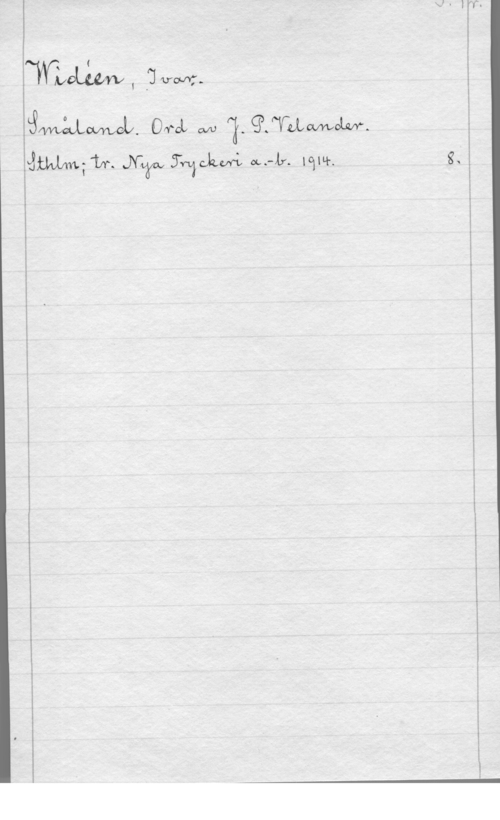 Widéen, Ivar.
Småland. Ord av J. P. Velander.
Sthlm; tr. Nya Tryckeri a.-b. 1914. 8.